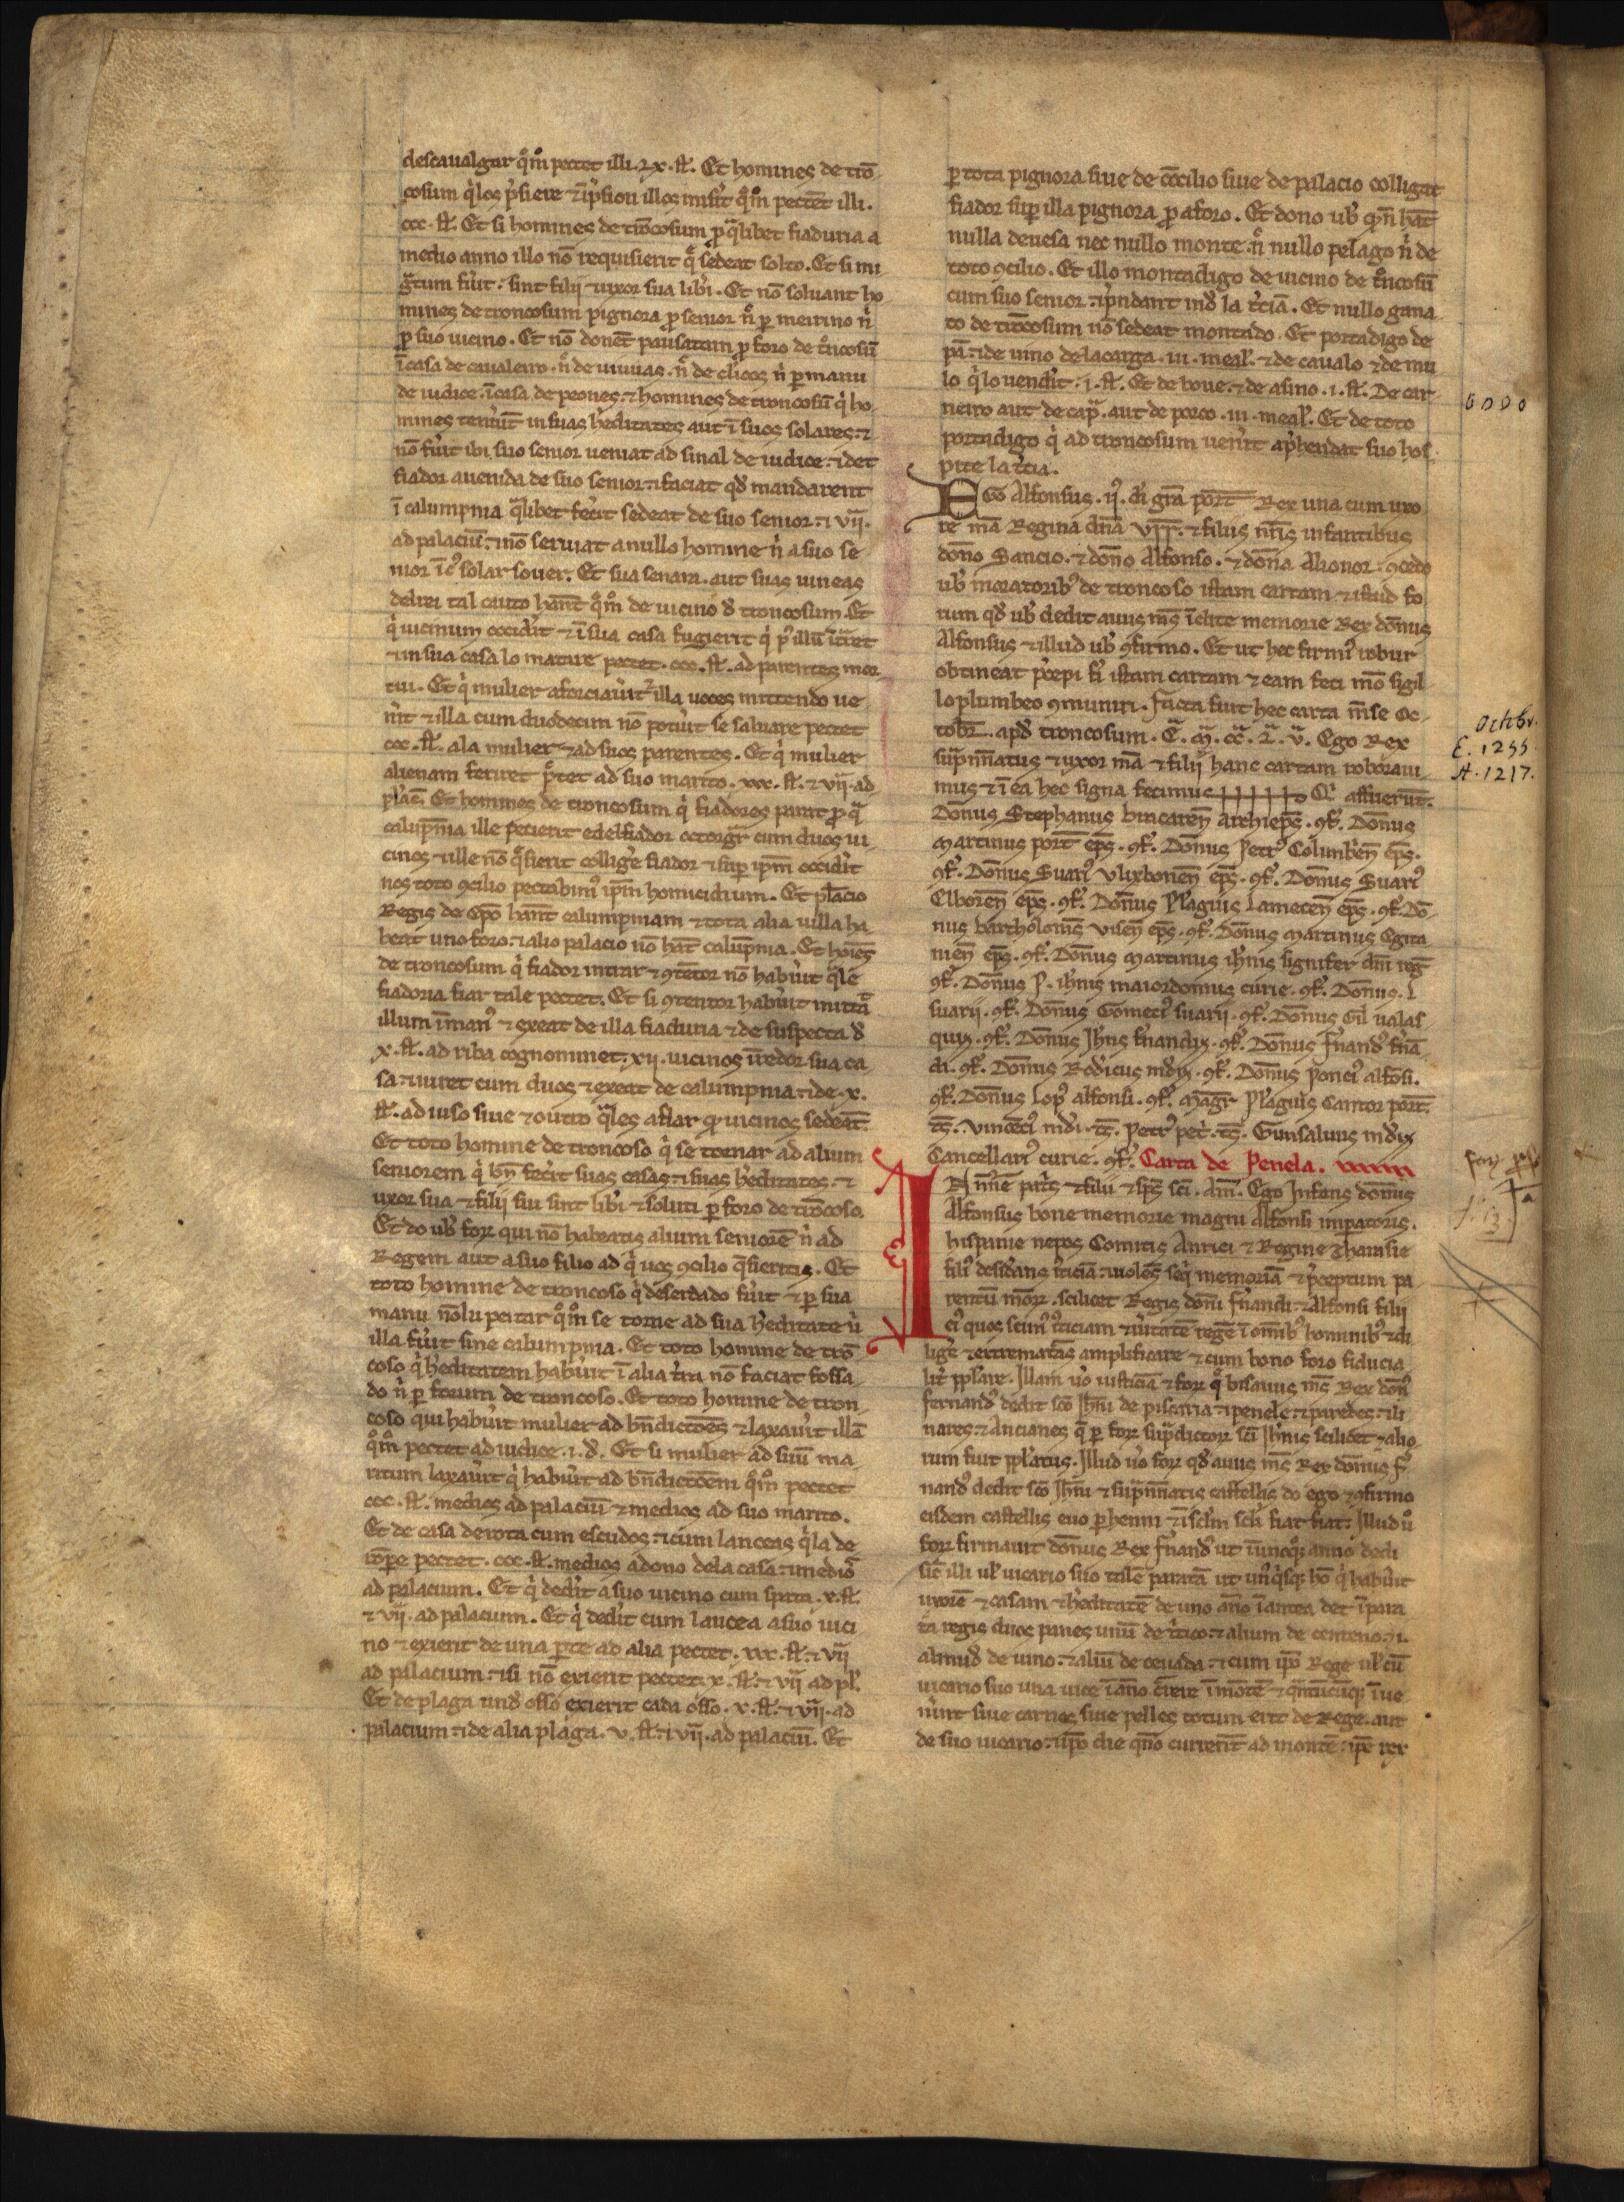 descaualgar qomo pectet illi .Lx. st. Et homines de tron
cosum
.ccc. st. Et si homines de troncosum pro qalibet fiaduria a
medio anno illo nō requisierit sedeat solto. Et si mi
gratum fuerit. sint filij uxor sua libi. Et nō soluant ho
mines de troncosum pignora pro senior ni per meirino ni
pro suo uicino. Et nō donēt pausatam pro foro de troncosū
ī casa de caualeiro. ni de uiuuas. ni de clicos ni per manu
de iudice. ī casa de peones. homines de troncosū qi ho
mines tenuerint in suas hereditates aut ī suos solares. ⁊
nō fuerit ibi suo senior ueniat ad sinal de iudice. ⁊ det
fiador auenida de suo senior. ⁊ faciat qd mandarent
ī calumpnia qalibet fecit sedeat de suo senior. ⁊ vijᵃ.
ad palaciū. ⁊ nō seruiat a nullo homine ni a suo se
nior ī solar souer. Et sua senara. aut suas uineas
tal cauto hant qomo de uicino de troncosum. Et
qi uicinum occidit ⁊ ī sua casa fugierit qi illū
⁊ in sua casa lo matare pectet .ccc. st. ad parentes mor
tui. Et qi mulier aforciauit ⁊ illa uoces mittendo ue
nit ⁊ illa cum duodecim nō potuit se saluare pectet
ccc. st. a la mulier ad suos parentes. Et qi mulier
alienam feriret pectet ad suo marito. xxx. st. ⁊ vijᵃ. ad
Et homines de troncosum qi fiadores
ille fecierit edelfiador octorgar cum duos ui
cinos ⁊ ille nō colligere fiador ⁊ super ipm occidit
nos toto concilio pectabimus ipm homicidium. Et placio
Regis de hant calumpniam ⁊ tota alia uilla ha
beat uno foro. ⁊ alio palacio nō hat calūpnia. Et hoies
de troncosum qi fiador intrar ⁊ nō habuit
fiadoria fiar tale pectet. Et si habuit
illum ⁊ exeat de illa fiaduria ⁊ de suspecta de
x. st. ad riba cognominet. xij. uicinos sua ca
sa. ⁊ iuret cum duos ⁊ exeat de calumpnia. ⁊ de .x.
st. ad iuso siue qales aflar uicinos sedeat.
Et toto homine de troncoso qi se tornar ad alium
seniorem qi bn fecit suas casas ⁊ suas hereditates. ⁊
uxor sua ⁊ filij sui sint libi ⁊ soluti per foro de troncoso.
Et do uobis qui nō habeatis alium seniorē ni ad
Regem aut a suo filio ad qi uos concilio Et
toto homine de troncoso qi deserdado fuit ⁊ per sua
manu qomo se torne ad sua hereditate
illa fuit sine calumpnia. Et toto homine de tron
coso qi hereditatem habuit ī alia terra nō faciat fossa
do ni per forum de troncoso. Et toto homine de tron
coso qui habuit mulier ad bndictoes ⁊ laxauit illā
qomo pectet ad iudice .i. d. Et si mulier ad suū ma
ritum laxauit qi habuit ad bndictoem qomo pectet
ccc. st. medios ad palaciū ⁊ medios ad suo marito.
Et de casa derota cum escudos. ⁊ cum lanceas qi la de
pectet .ccc. st. medios a dono de la casa. ⁊ medios
ad palacium. Et qi dedit a suo uicino cum spata .x. st.
⁊ vijᵃ. ad palacium. Et qi dedit cum lancea a suo uici
no ⁊ exierit de una parte ad alia pectet. xxx. st. ⁊ vijᵃ
ad palacium. ⁊ si nō exierit pectet. x. st. ⁊ vijᵃ ad pl.
Et de plaga und osso exierit cada osso. x. st. ⁊ vijᵃ. ad
palacium. ⁊ de alia plaga. v. st. ⁊ vijᵃ. ad palaciū. Et
per tota pignora siue de cōcilio siue de palacio colligat
fiador super illa pignora pro aforo. Et dono ub
nulla deuesa nec nullo monte ni nullo pelago ni de
toto concilio. Et illo montadigo de uicino de troncosū
cum suo senior prendant inde la tciā. Et nullo gana
to de trōcosum nō sedeat montado. Et portadigo de
pā. ⁊ de uino de la carga .iii. meal. ⁊ de caualo ⁊ de mu
lo qi lo uendit .i. st. Et de boue. ⁊ de asino .i. st. De car
neiro aut de capra. aut de porco .iii. meal. Et de toto
portadigo qi ad troncosum uenit aprehendat suo hos
pite la tcia.
EGo Alfonsus .ij. di gra Port Rex una cum uxo
re mā Regina dna Vrr. ⁊ filiis nris infantibus
donno Sancio. ⁊ donno Alfonso. ⁊ donna Alionor. concedo
ub moratorib de troncoso istam cartam ⁊ istud fo
rum qd ub dedit auus ms īclite memorie Rex donnus
Alfonsus ⁊ illud ub confirmo. Et ut hec firmi robur
obtineat precepi istam cartam ⁊ eam feci meo sigil
lo plumbeo cōmuniri. Facta fuit hec carta mse Oc
tobr. apd troncosum. Eᵃ. Mᵃ. CCᵃ. Lᵃ. Vᵃ. Ego Rex
supnnatus ⁊ uxor mā ⁊ filij hanc cartam roboraui
mus ⁊ ī ea hec signa fecimus ††††† Qi affuerūt.
Donnus Stephanus bracaren Archieps. cf. Donnus
Martinus Port eps. cf. Donnus Petr Colimbren eps.
cf. Donnus Suari Vlixbonen eps. cf. Donnus Suari
Elboren eps. cf. Donnus Plagius Lamecen eps. cf. Dō
nus bartholoms Visen eps. cf. Donnus Martinus Egita
nien eps. cf. Donnus Martinus ihnis signifer dni reg
cf. Donnus P. ihnis maiordomus curie. cf. Donnus. L
suarij. cf. Donnus Gomeci suarij. cf. Donnus Gil ualas
quiz. cf. Donnus Ihnis fnandiz. cf. Donnus Fnand fnā
di. cf. Donnus Rodicus mdiz. cf. Donnus Ponci alfōsi.
cf. Donnus Lop alfonsi. cf. Magr Plagius Cantor port.
ts. Vincēci mdi. ts. Petr pet. ts. Gunsaluus mdiz
Cancellari curie. cf. Carta de Penela.
IN nne patris ⁊ filii ⁊ sps sci. Am. Ego Infans donnus
Alfonsus bone memorie magni Alfonsi imperatoris.
hispanie nepos Comitis Anrici ⁊ Regine Tharasie
fili desiderans iusticiā. ⁊ uolēs seq memoriā ⁊ preceptum pa
rentū meorum. scilicet Regis donni Fnandi. ⁊ Alfonsi filij
ei quos scim iusticiam ⁊ ueritatē ī omnib hominib ⁊ di
lige amplificare ⁊ cum bono foro fiducia
lit Illam uo iusticiā ⁊ for bisauus ms Rex don
fernand dedit sco Ihni de piscaria. ⁊ penele. ⁊ paredes. ⁊ li
nares. ⁊ Ancianes q per for supradictor sci Ihnis scilicet ⁊ alio
rum fuit Illud uo for qd auus ms Rex donnus F
nand dedit sco Ihni ⁊ supnnatis castellis do ego ⁊ confirmo
eisdem castellis euo perhenni fiat fiat. Illud uo
for firmauit donnus Rex Fnand ut anno
illi ul uicario suo talē paratā ut qi habuit
uxorē ⁊ casam ⁊ hereditatē de uno ano ī antea det ī para
ta regis duos panes unū de tritico ⁊ alium de centeno. ⁊ i.
almud de uino. ⁊ aliū de ceuada. ⁊ cum ipo Rege ul cū
uicario suo una uice ī ano ī montē ⁊ ī ue
nirint siue carnes siue pelles totum erit de Rege. aut
de suo uicario. ⁊ ipo die qno currerint ad monte. ipe rex
Octbr.
E. 1255
A. 1217.